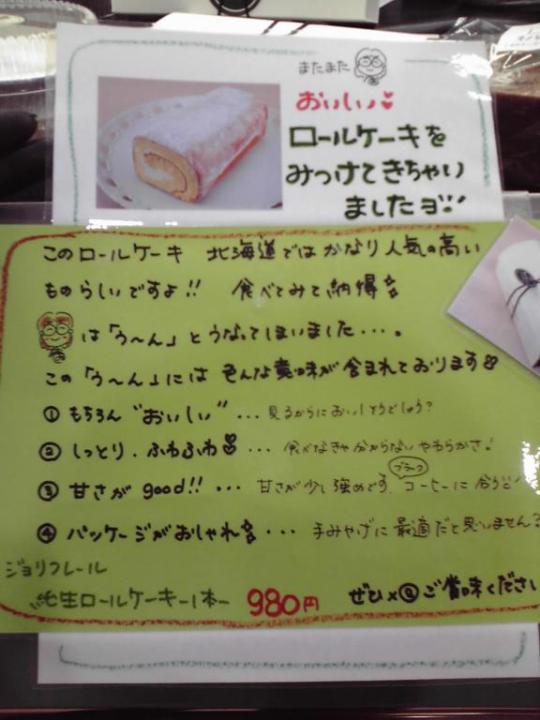 またまた
おいしい
ロールケーキを
みつけてきちゃい
ましたヨ!!
このロールケーキ 北海道ではかなり人気の高い
ものらしいですよ!! 食べてみて納得
は「う〜ん」とうなってしまいました・・・。
この「う〜ん」には色んな意味が含まれております
① もちろん "おいしい" ・・・ 見るからにおいしそうでしょう?
② しっとり、ふわふわ ・・・ 食べなきゃわからないやわらかさ!
ブラック
③ 甘さが good!! ・・・ 甘さが少し強めです。コーヒーに合う
④ パッケージがおしゃれ ・・・ 手みやげに最適だと思いません?
ジョリフレール
生ロールケーキ1本 980円 ぜひ×② ご賞味ください